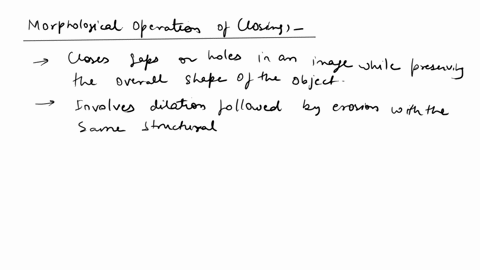 Morphological Operation of Closing:-
→ Closes gaps or holes in an image while preserving
the overall shape of the object.
→ Involves dilation followed by erosion with the
same structural